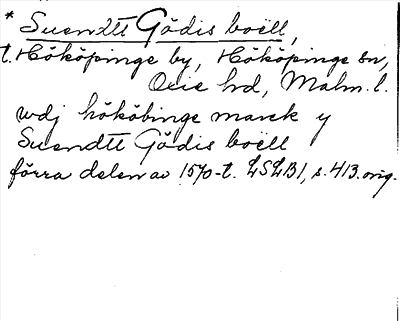 * Suendtt Gödis boëll,
t. Hököpinge by, Hököpinge sn,
Oxie hd, Malm. l.
wdj hököbinge marck y
Suendtt Gödis boëll
förra delen av 1570-t. LSLB1, s. 413. orig.